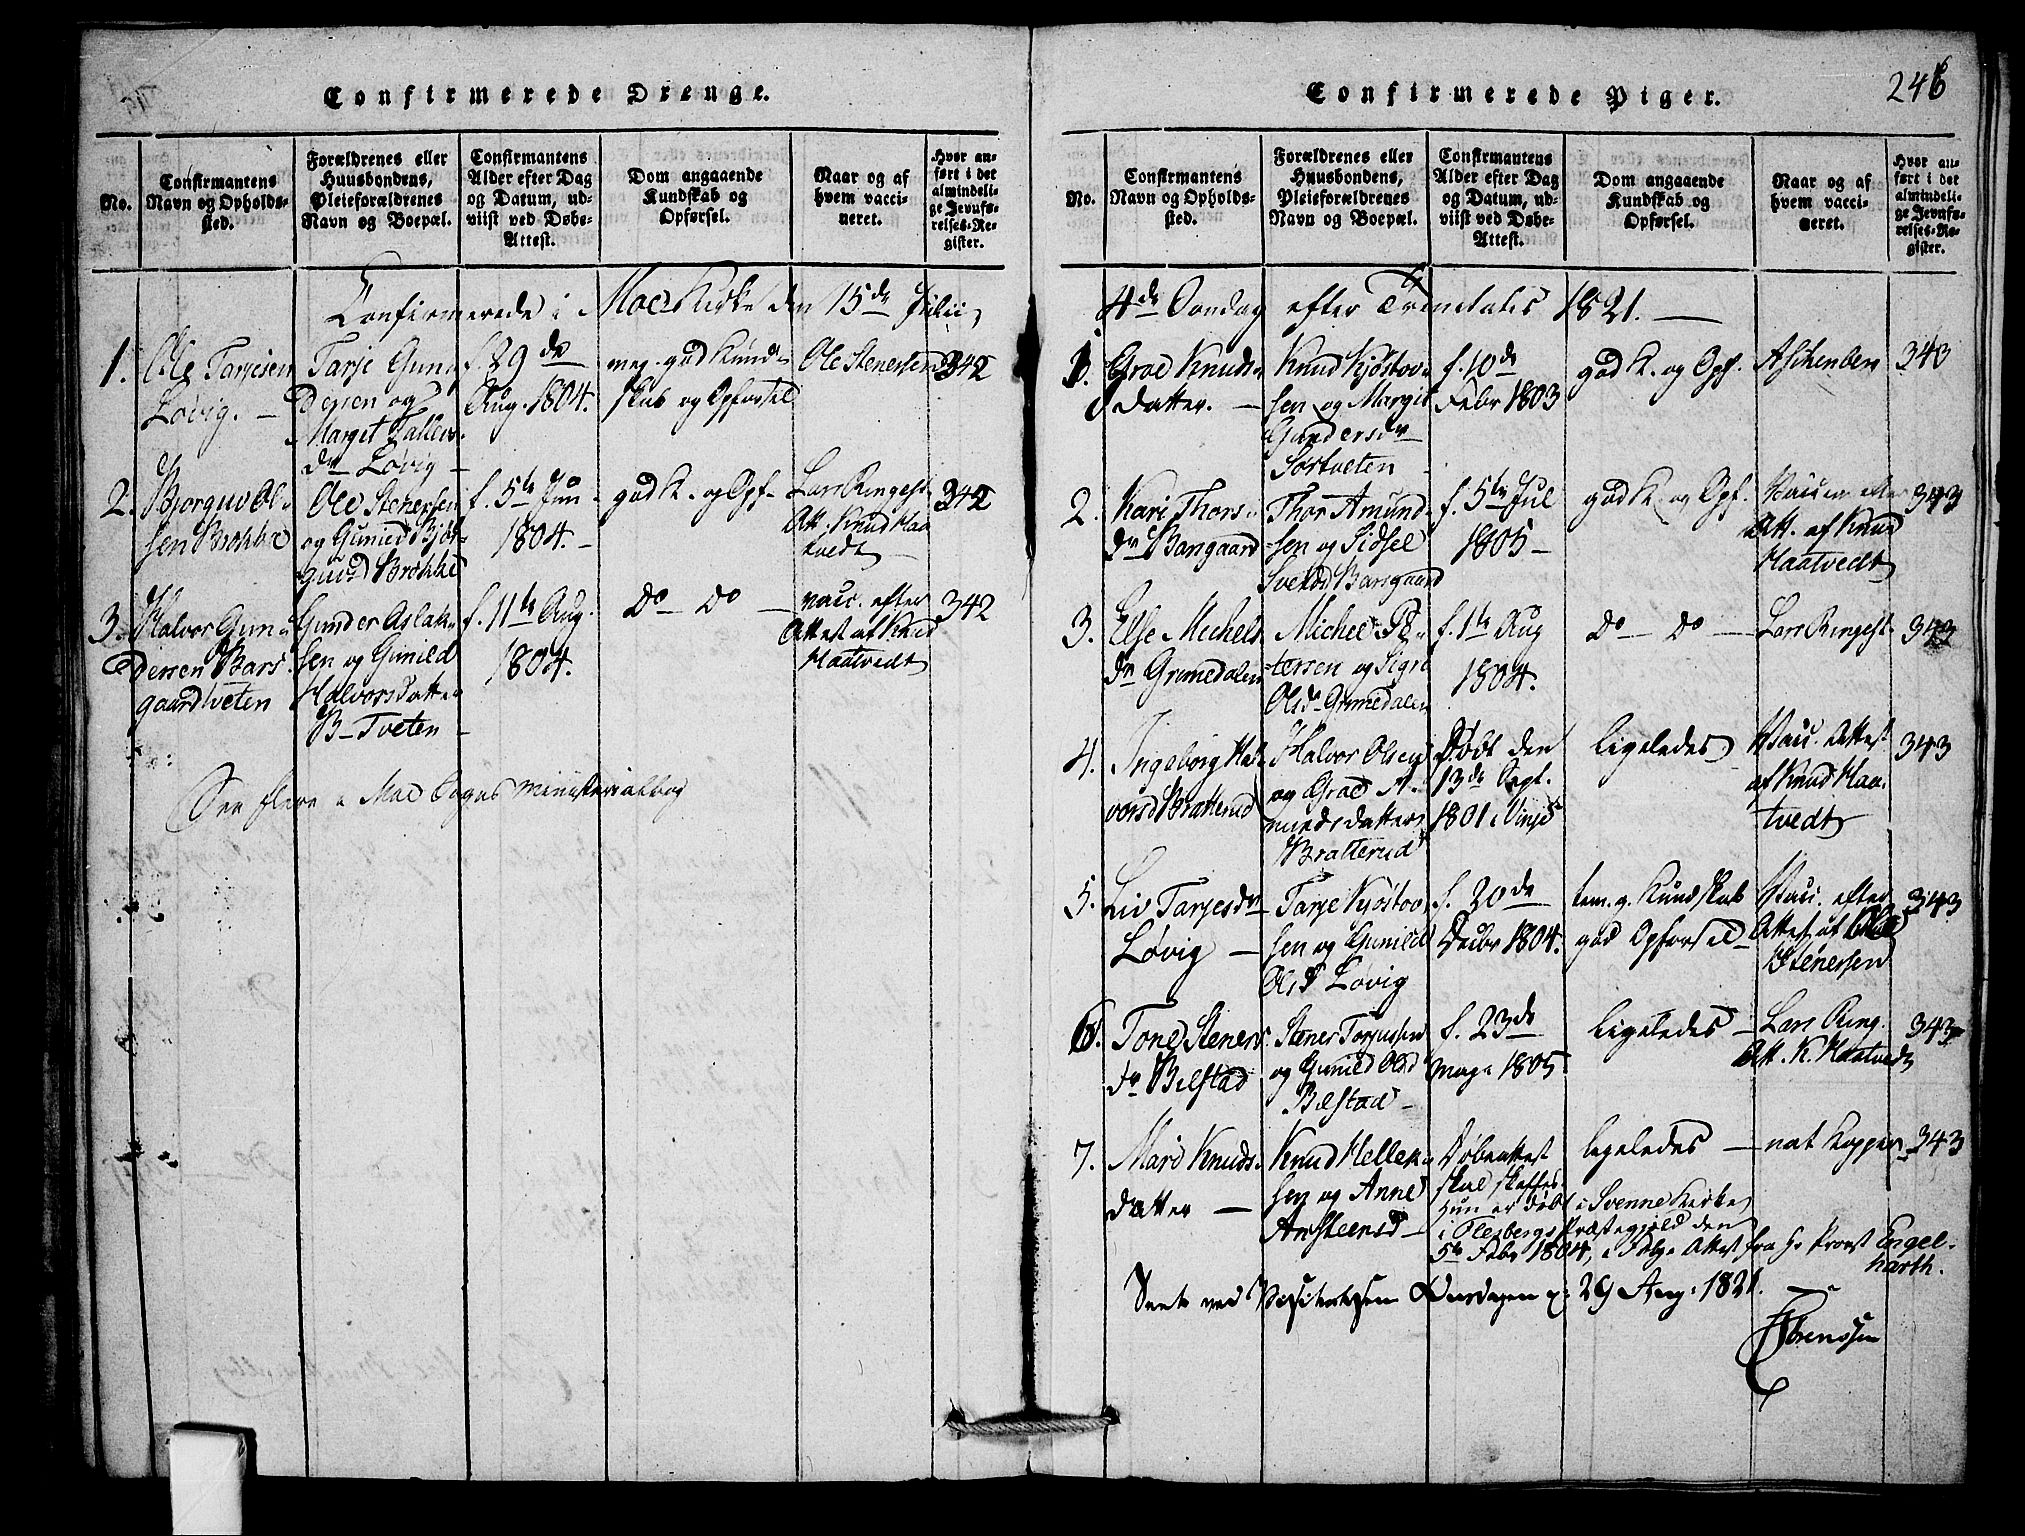 Confirmerede Drenge.
No.
Confirmantens
Navn og Opholds-
sted.
Forældrenes eller
Huusbondens,
Pleieforældrenes
Navn og Boepæl.
Confirmantens
Alder efter Dag
og Datum, ud-
viist ved Døbe-
Attest.
Dom angaaende
Kundskab og
Opførsel.
Naar og af
hvem vacci-
neret.
Hvor an-
ført i det
almindeli-
ge Jevnfø-
relses-Re-
gister.
Confirmerede i Moe Kirke den 15de Julii
1.
Ole Tarjesen
Løvig. –
Tarje Gun-
dersen og
Marget Tallevs
dr Løvig –
f. 29de
Aug. 1804.
meg. god Kund-
skab og Opførsel
Ole Stenersen
342
2.
Bjorguv Ol-
sen Brokke
Ole Stenersen
og Gunild Bjør-
guvsd Brokke
f. 5te Jun
1804. –
god K. og Opf –
Lars Ringest.
Att. Knud Haa-
tvedt
342
3.
Halvor Gun-
dersen Bars-
gaardtveten
Gunder Aslak-
sen og Gunild
Halvorsdatter
B– Tveten –
f. 11te Aug.
1804.
Do – Do –
vacc. efter
Attest af Knud
Haatvedt
342
See flere i Moe Sogns Ministerialbog
Confirmerede Piger.
246
No.
Confirmantens
Navn og Opholds-
sted.
Forældrenes eller
Huusbondens,
Pleieforældrenes
Navn og Boepæl.
Confirmantens
Alder efter Dag
og Datum, ud-
viist ved Døbe-
Attest.
Dom angaaende
Kundskab og
Opførsel.
Naar og af
hvem vacci-
neret.
Hvor an-
ført i det
almindeli-
ge Jevnfø-
relses-Re-
gister.
4de Søndag efter Trinitatis 1821. –
1.
Groe Knuds-
datter. –
Knud Kjøstov-
sen og Margit
Gundersdr
Sørtveten
f. 10de
Febr 1803
god K. og Opf.
Aschenben
343
2.
Kari Thors-
dr Barsgaard
Thor Amund-
sen og Sidsel
Svendsd Barsgaard
f. 5te Jul
1805 –
god K. og Opf.
Vacc. efter
Att. af Knud
Haatvedt
343
3.
Else Michels
dr Grimedalen
Michel Pe-
tersen og Sigri
Olsd Grimedalen
f. 1te Aug
1804.
Do – Do –
Lars Ringest.
343
4.
Ingeborg Hal-
vorsd Bratterud
Halvor Olsen
og Groe A-
mundsdatter
Bratterud
Døbt den
13de Sept.
1801 i Vinje
ligeledes
Vacc. Attest
af Knud Haa-
tvedt
343
5.
Liv Tarjesdr
Løvig –
Tarje Kjøstov-
sen og Gunild
Olsd Løvig
f. 20de
Decbr 1804.
tem. g. Kundskab
god Opførsel –
Vacc. efter
Attest af Ole
Stenersen
343
6.
Tone Steners
dr Bilstad
Stener Torjussen
og Gunild Olsd
Bilstad –
f. 23de
May 1805
ligeledes –
Lars Ring.
Att. K. Haatvedt
343
7.
Mari Knuds-
datter –
Knud Hellek-
sen og Anne
Ansteensd –
Døbeattest
skal skaffes.
Hun er døbt i Svenne Kirke
i Flesbergs Præstegjeld den
5te Febr 1804, i Følge Attest fra Hr Provst Engel-
harth.
ligeledes –
nat. Kopper –
343
Seet ved Visitatsen Onsdagen d: 29 Aug: 1821.